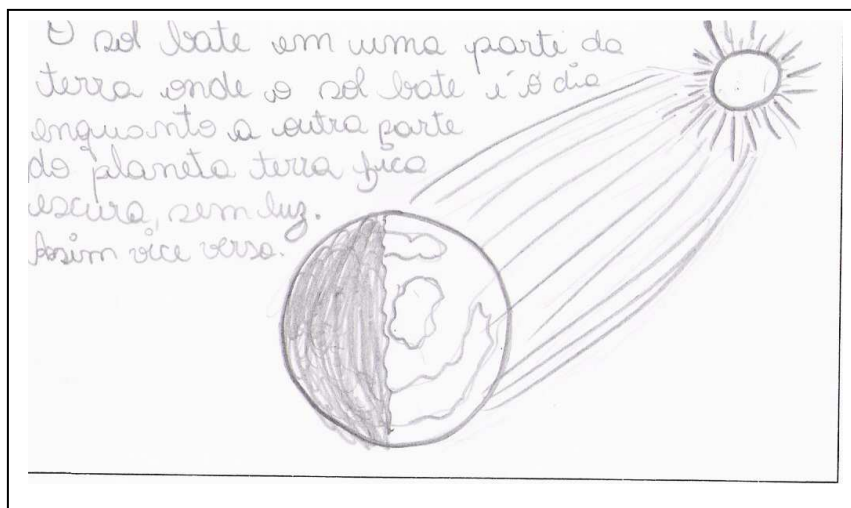 O sol bate em uma parte da
terra onde o sol bate é o dia
enquanto a outra parte
do planeta terra fica
escura, sem luz.
Assim vice versa.